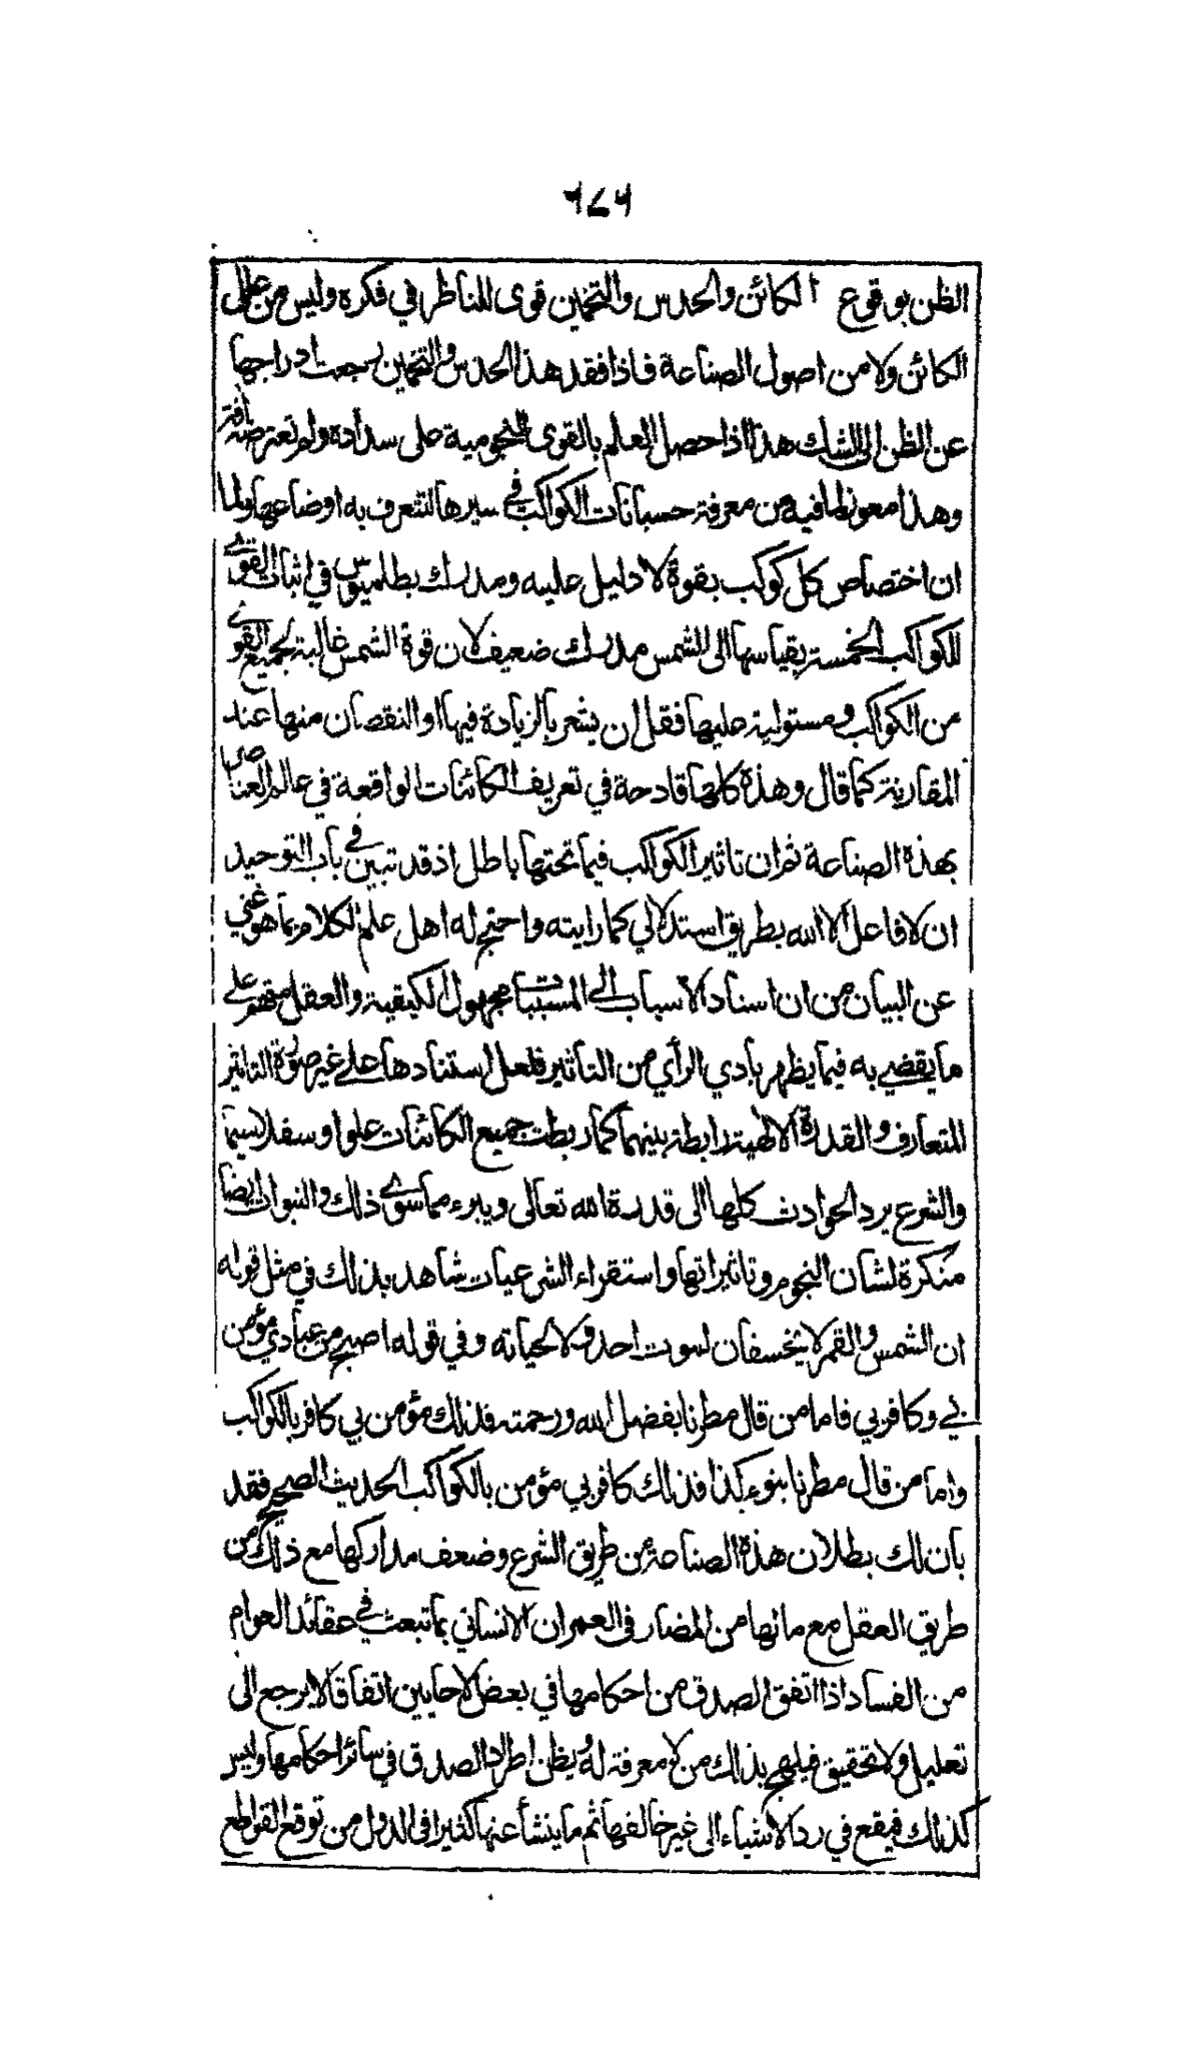 ٦٤٦
الظن بوقوع الكائن والحدس والتخمين قوى للناظر في فكره وليس من علل
الكائن ولا من اصول الصناعة فاذا فقد هذا الحدس والتخمين رجعت ادراجها
عن الظن الى الشك هذا اذا حصل العلم بالقوى النجومية على سداده ولم تعترضه آفة
وهذا معوز لما فيه من معرفة حسبانات الكواكب في سيرها لتتعرف به اوضاعها ولما
ان اختصاص كل كوكب بقوة لا دليل عليه ومدرك بطلميوس في اثبات القوى
للكواكب الخمسة بقياسها الى الشمس مدرك ضعيف لان قوة الشمس غالبة لجميع القوى
من الكواكب ومستولية عليها فقل ان يشعر بالزيادة فيها او النقصان منها عند
المقارنة كما قال وهذه كلها قادحة في تعريف الكائنات الواقعة في عالم العناصر
بهذه الصناعة ثم ان تاثير الكواكب فيما تحتها باطل اذ قد تبين في باب التوحيد
ان لا فاعل الا الله بطريق استدلالي كما رايته واحتج له اهل علم الكلام بما هو غني
عن البيان من ان اسناد الاسباب الى المسببات مجهول الكيفية والعقل متهم على
ما يقضي به فيما يظهر بادي الرأي من التاثير فلعل استنادها على غير صورة التاثير
المتعارف والقدرة الالهية رابطة بينهما كما ربطت جميع الكائنات علوا وسفلا سيما
والشرع يرد الحوادث كلها الى قدرة الله تعالى ويبرء مما سوى ذلك والنبوات ايضا
منكرة لشان النجوم وتاثيراتها واستقراء الشرعيات شاهد بذلك في مثل قوله
ان الشمس والقمر لا يخسفان لموت احد ولا لحياته وفي قوله اصبح من عبادي مؤمن
بي وكافر بي فاما من قال مطرنا بفضل الله ورحمته فذلك مؤمن بي كافر بالكواكب
واما من قال مطرنا بنوء كذا فذلك كافر بي مؤمن بالكواكب الحديث الصحيح فقد
بان لك بطلان هذه الصناعة من طريق الشرع وضعف مداركها مع ذلك من
طريق العقل مع ما لها من المضار في العمران الانساني بما تبعث في عقائد العوام
من الفساد اذا اتفق الصدق من احكامها في بعض الاحايين اتفاقا لا يرجع الى
تعليل ولا تحقيق فيلهج بذلك من لا معرفة له ويظن اطراد الصدق في سائر احكامها وليس
كذلك فيقع في رد الاشياء الى غير خالقها ثم ما ينشأ عنها كثيرا في الدول من توقع القواطع